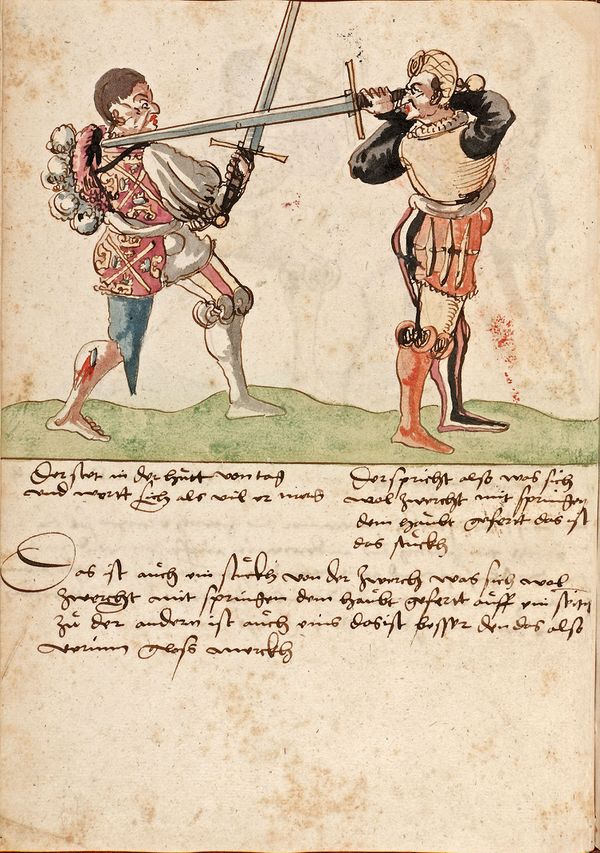 Der stet in der hutt vom tag
und wertt sich als vil er mag
Der spricht also was sich
wol zwercht mit springen
dem haubt gefertt das ist
das stuckh
Das ist auch ein stuckh von der zwerch was sich wol
zwercht mit springen dem haubt gefertt auff ein seite
zu der andern ist auch eins das ist besser den das also
glos merckh